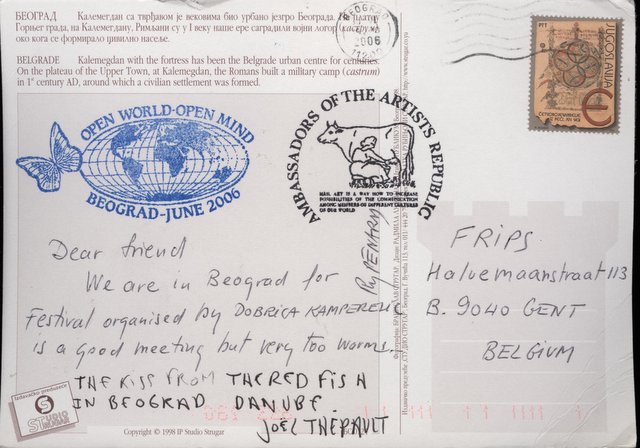 БЕОГРАД Калемегдан са тврђавом је вековима био урбано језгро Београда. На платоу
Горњег града, на Калемегдану, Римљани су у I веку наше ере саградили војни логор (каструм)
око кога се формирало цивилно насеље.
BELGRADE Kalemegdan with the fortress has been the Belgrade urban centre for centuries.
On the plateau of the Upper Town, at Kalemegdan, the Romans built a military camp (castrum)
in 1st century AD, around which a civilian settlement was formed.
BEOGRAD
2006
JUGOSLAVIJA
PTT
OPEN WORLD-OPEN MIND
BEOGRAD-JUNE 2006
AMBASSADORS OF THE ARTISTS REPUBLIC
MAIL ART IS A WAY HOW TO INCREASE
POSSIBILITIES OF THE COMMUNICATION
AMONG MEMBERS OF DIFFERENT CULTURES
OF OUR WORLD
Dear friend
We are in Beograd for
Festival organised by DOBRICA KAMPERELIC
is a good meeting but very too worms
THE KISS FROM THE RED FISH
IN BEOGRAD DANUBE
JOËL THÉPAULT
Ry PENARD
FRIPS
Halvemaanstraat 113
B. 9040 GENT
BELGIUM
Izdavačko preduzeće
STUDIO
STRUGAR
Copyright © 1998 IP Studio Strugar